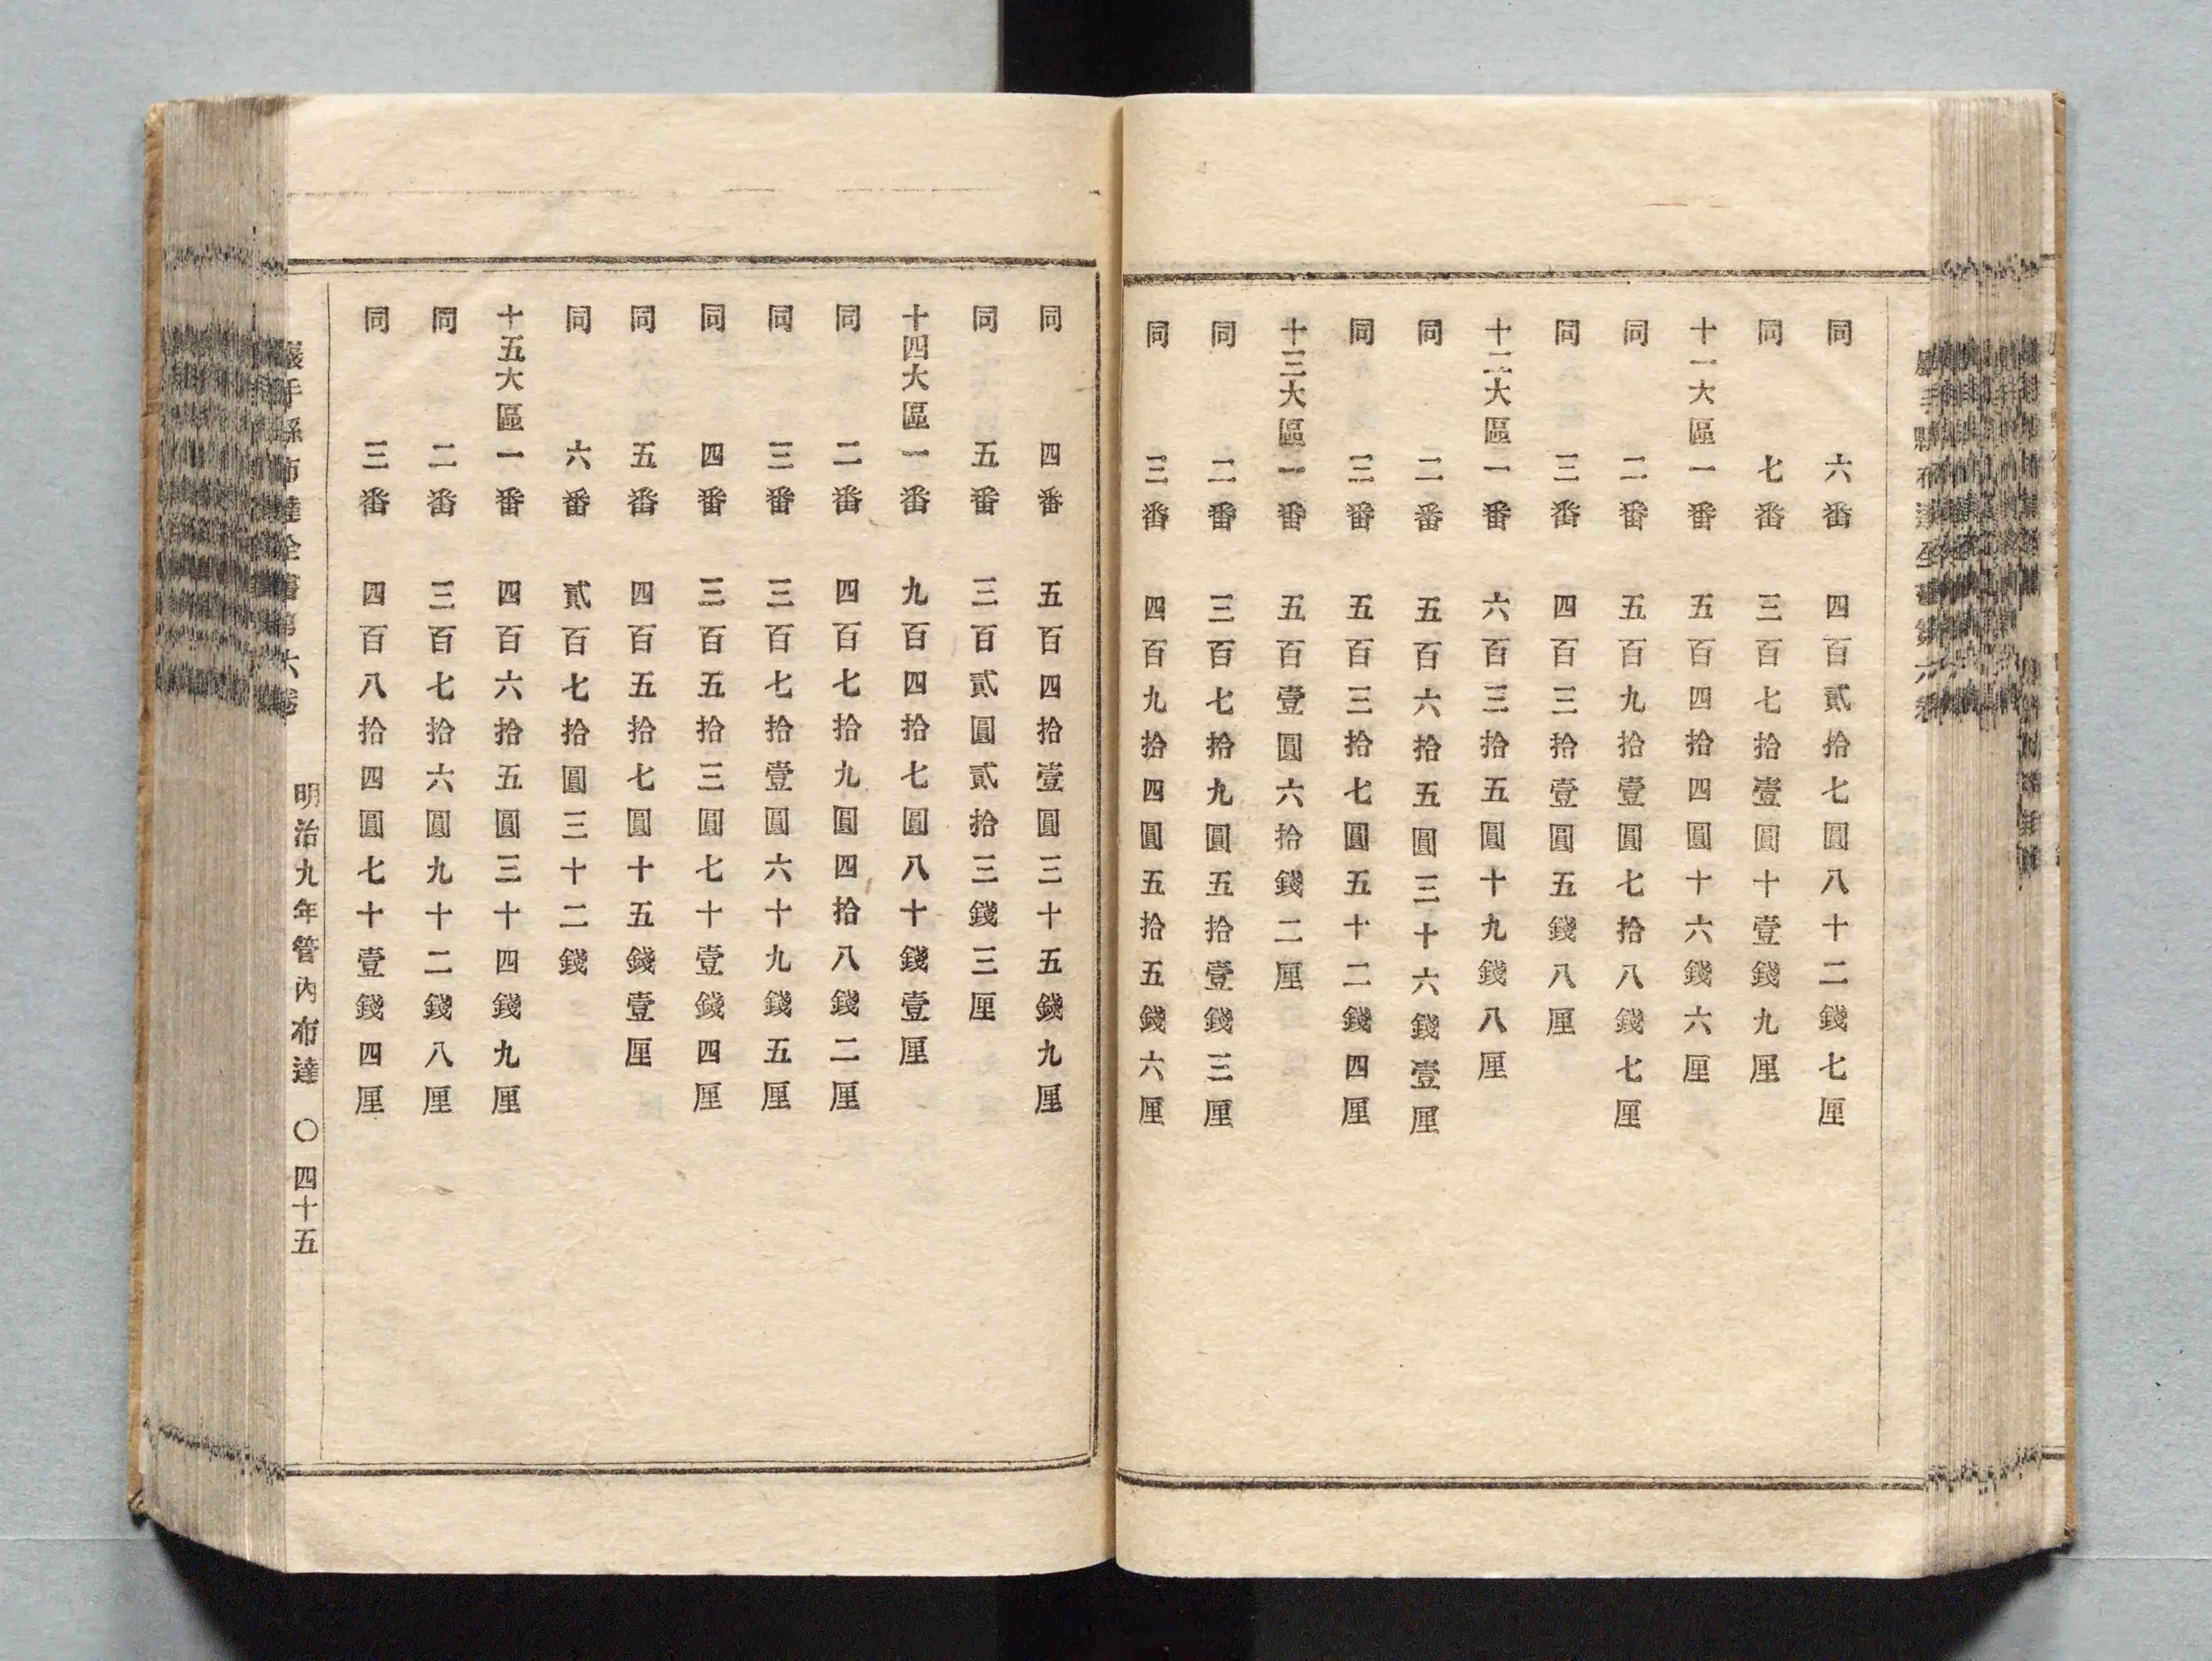 同 六番 四百貳拾七圓八十二錢七厘
同 七番 三百七拾壹圓十壹錢九厘
十一大區一番 五百四拾四圓十六錢六厘
同 二番 五百九拾壹圓七拾八錢七厘
同 三番 四百三拾壹圓五錢八厘
十二大區一番 六百三拾五圓十九錢八厘
同 二番 五百六拾五圓三十六錢壹厘
同 三番 五百三拾七圓五十二錢四厘
十三大區一番 五百壹圓六拾錢二厘
同 二番 三百七拾九圓五拾壹錢三厘
同 三番 四百九拾四圓五拾五錢六厘
同 四番 五百四拾壹圓三十五錢九厘
同 五番 三百貳圓貳拾三錢三厘
十四大區一番 九百四拾七圓八十錢壹厘
同 二番 四百七拾九圓四拾八錢二厘
同 三番 三百七拾壹圓六十九錢五厘
同 四番 三百五拾三圓七十壹錢四厘
同 五番 四百五拾七圓十五錢壹厘
同 六番 貳百七拾圓三十二錢
十五大區一番 四百六拾五圓三十四錢九厘
同 二番 三百七拾六圓九十二錢八厘
同 三番 四百八拾四圓七十壹錢四厘
巖手縣布達全書第六卷 明治九年管內布達 〇四十五